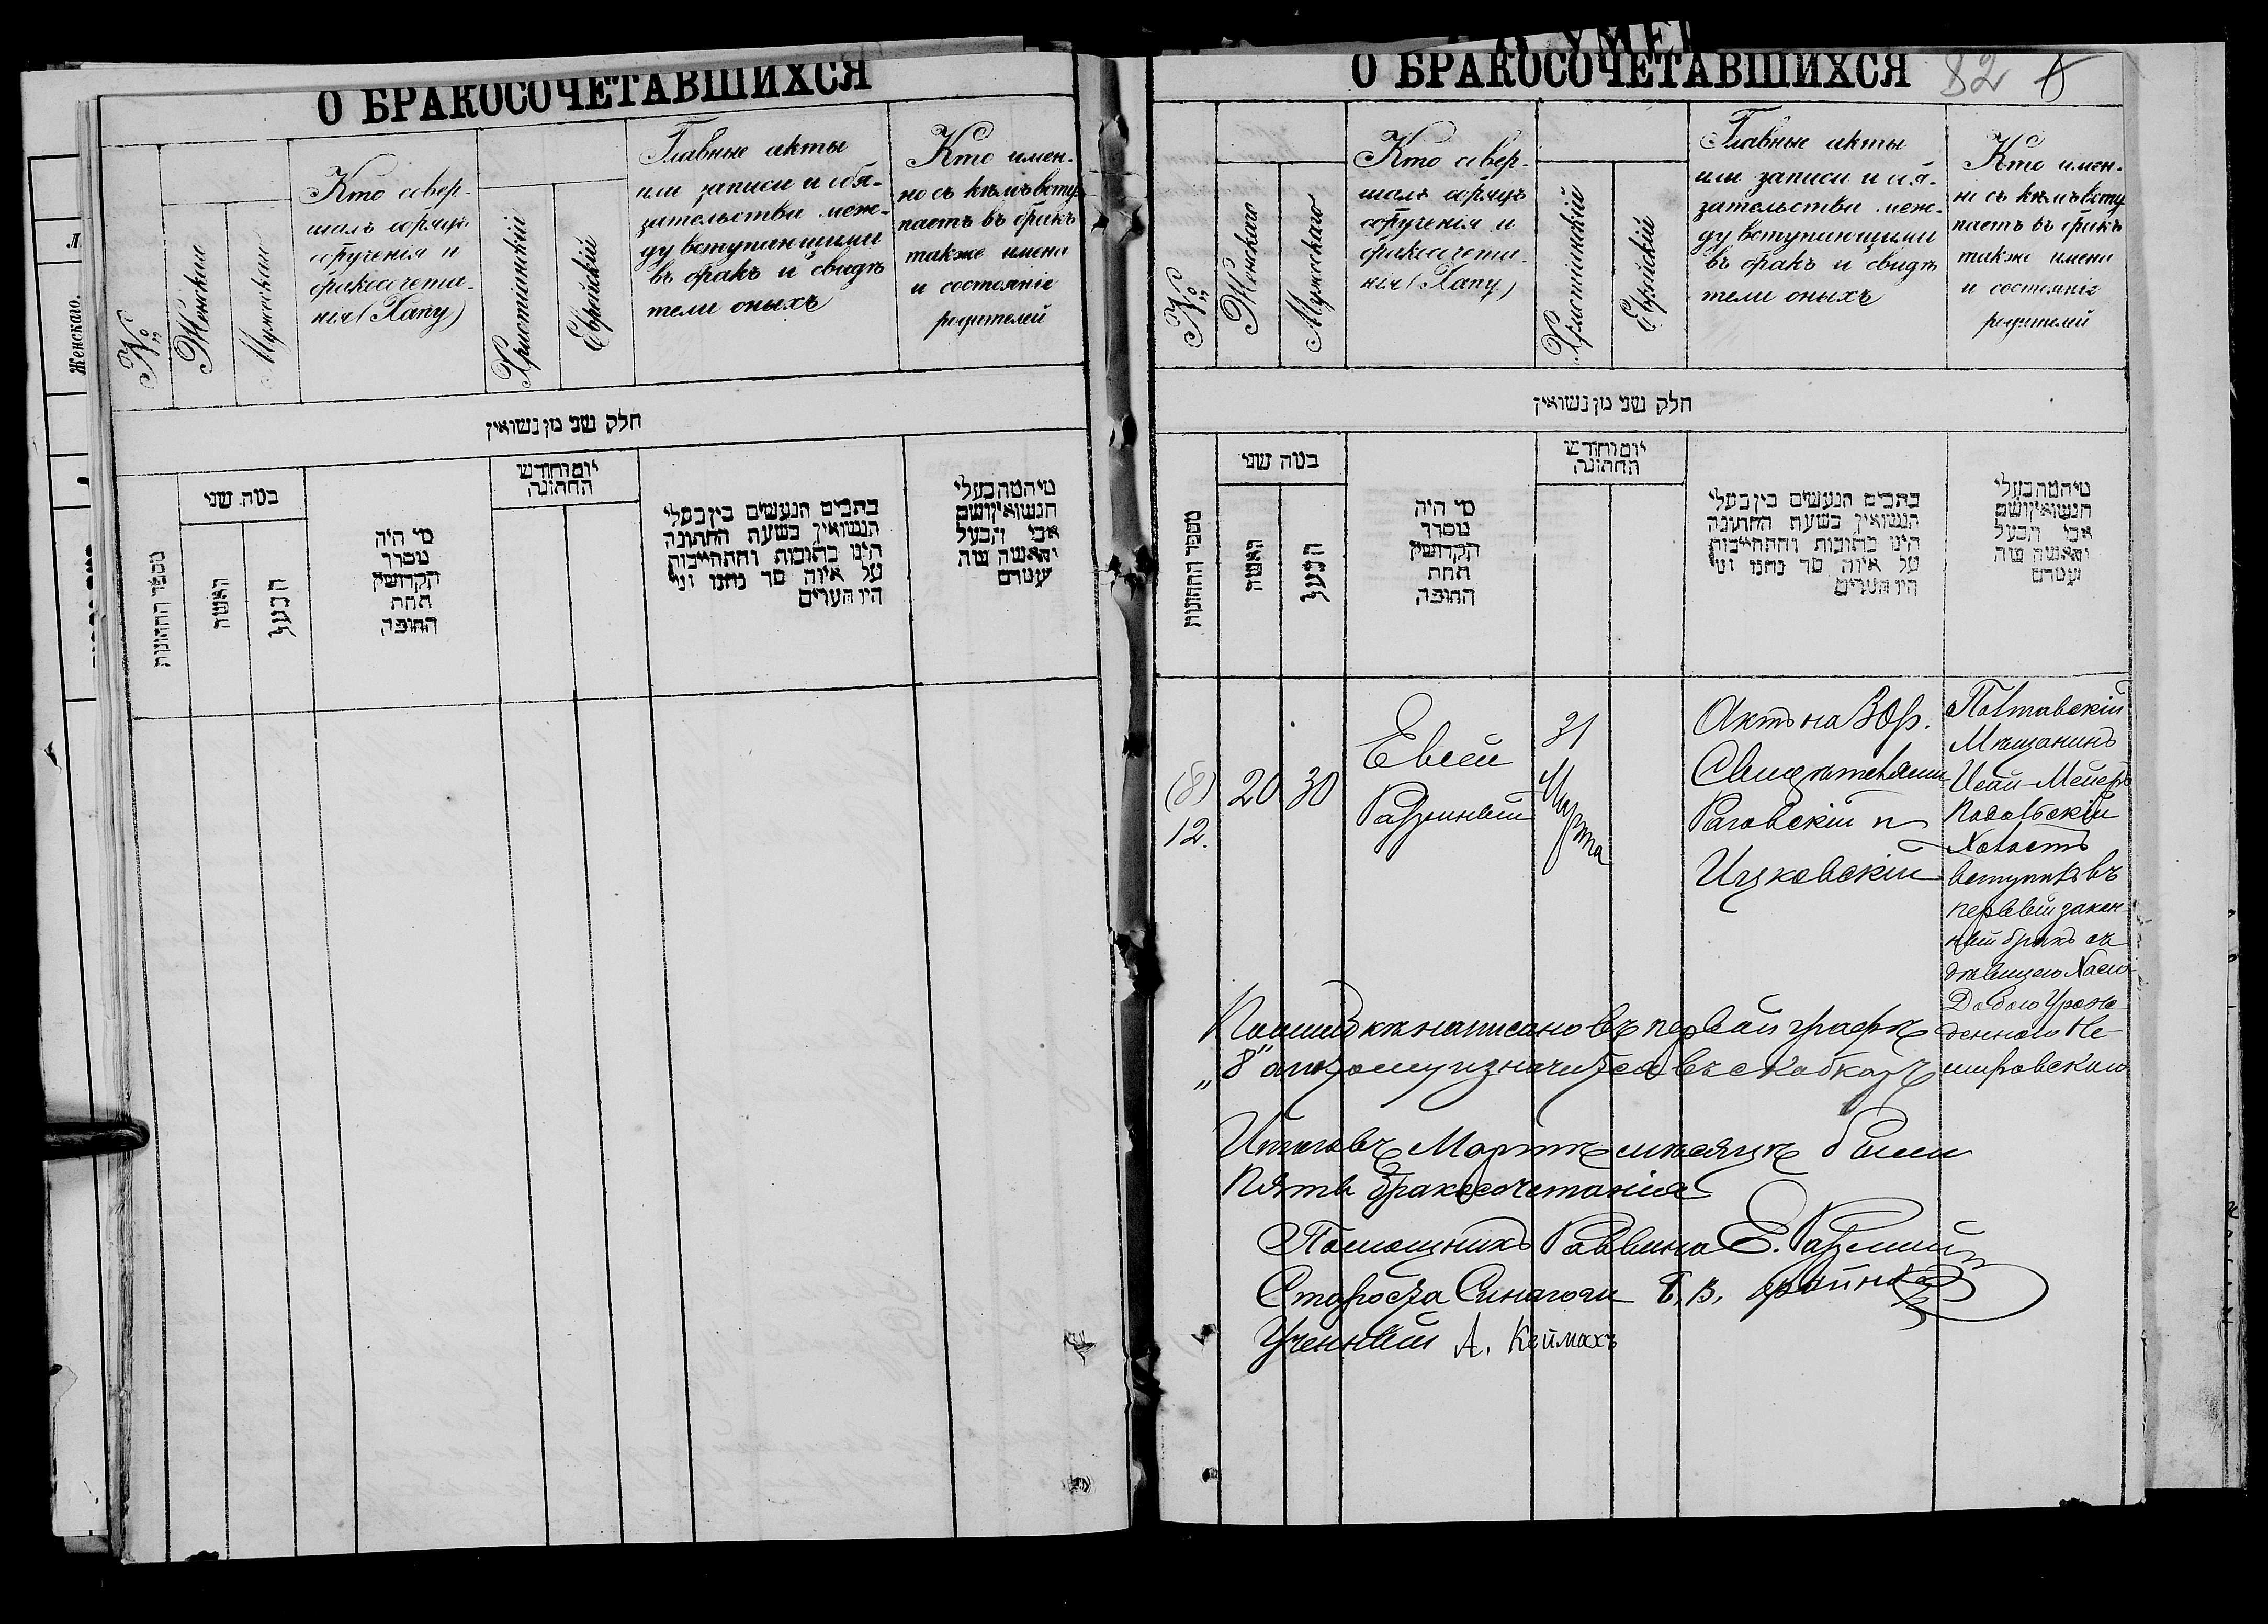 О БРАКОСОЧЕТАВШИХСЯ
№
Женскаго
Мужескаго
Кто совер-
шалъ обрядъ
обрученія и
бракосочета-
нія (Хапу)
Христіанскій
Еврейскій
Главные акты
или записи и обя-
зательства меж-
ду вступающими
въ бракъ и свидѣ
тели оныхъ
Кто имен-
но съ кѣмъ всту
паетъ въ бракъ
также имена
и состояніе
родителей
חלק שני מן נשואין
מספר החתונות
כמה שני
האשה
הבעל
מי היה
מסדר
הקדושין
תחת
החופה
יום וחודש
החתונה
כתבים הנעשים בין בעלי
הנשואין בשעת החתונה
היינו כתובות והתחייבות
על איזה סך נתנו ומי
היו העדים
מי המה בעלי
הנשואין ושם
אבי הבעל
והאשה ומה
עמדם
Женскаго.
О БРАКОСОЧЕТАВШИХСЯ
82
№
Женскаго
Мужескаго
Кто совер-
шалъ обрядъ
обрученія и
бракосочета-
нія (Хапу)
Христіанскій
Еврейскій
Главные акты
или записи и обя-
зательства меж-
ду вступающими
въ бракъ и свидѣ
тели оныхъ
Кто имен-
но съ кѣмъ всту
паетъ въ бракъ
также имена
и состояніе
родителей
חלק שני מן נשואין
מספר החתונות
כמה שני
האשה
הבעל
מי היה
מסדר
הקדושין
תחת
החופה
יום וחודש
החתונה
כתבים הנעשים בין בעלי
הנשואין בשעת החתונה
היינו כתובות והתחייבות
על איזה סך נתנו ומי
היו העדים
מי המה בעלי
הנשואין ושם
אבי הבעל
והאשה ומה
עמדם
(8)
12.
20
30
Евсей
Разумный
31
Марта
Актъ на 30 р.
Свидѣтелями
Роговскій и
Ицковскій
Полтавскій
Мѣщанинъ
Исай-Мейеръ
Подольскій
Холостъ
вступилъ въ
первый закон-
ный бракъ съ
дѣвицею Хаею
Добою Урож-
денною Не-
мировскою
По ошибкѣ написано въ первой графѣ
„8" а потому и значится въ скобкахъ
Итого въ Мартѣ мѣсяцѣ были
пять бракосочетанія
Помощникъ Раввина Е. Разумный
Староста Синагоги
Ученный А. Кеймахъ